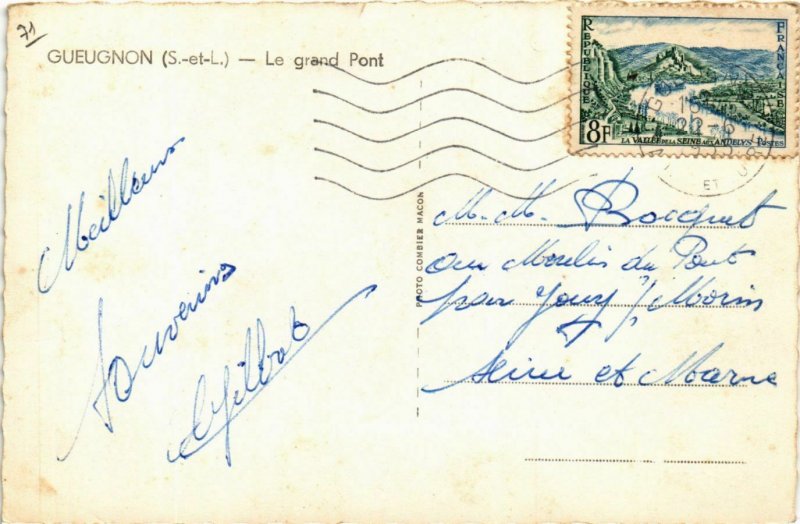 71
GUEUGNON (S.-et-L.) — Le grand Pont
Meilleurs
Souvenirs
PHOTO COMBIER MACON
REPUBLIQUE FRANÇAISE
8F
LA VALLÉE DE LA SEINE AUX ANDELYS POSTES
ET
M. M. Bocquet
au Moulin du Pont
par Jouy s/ Morin
Seine et Marne